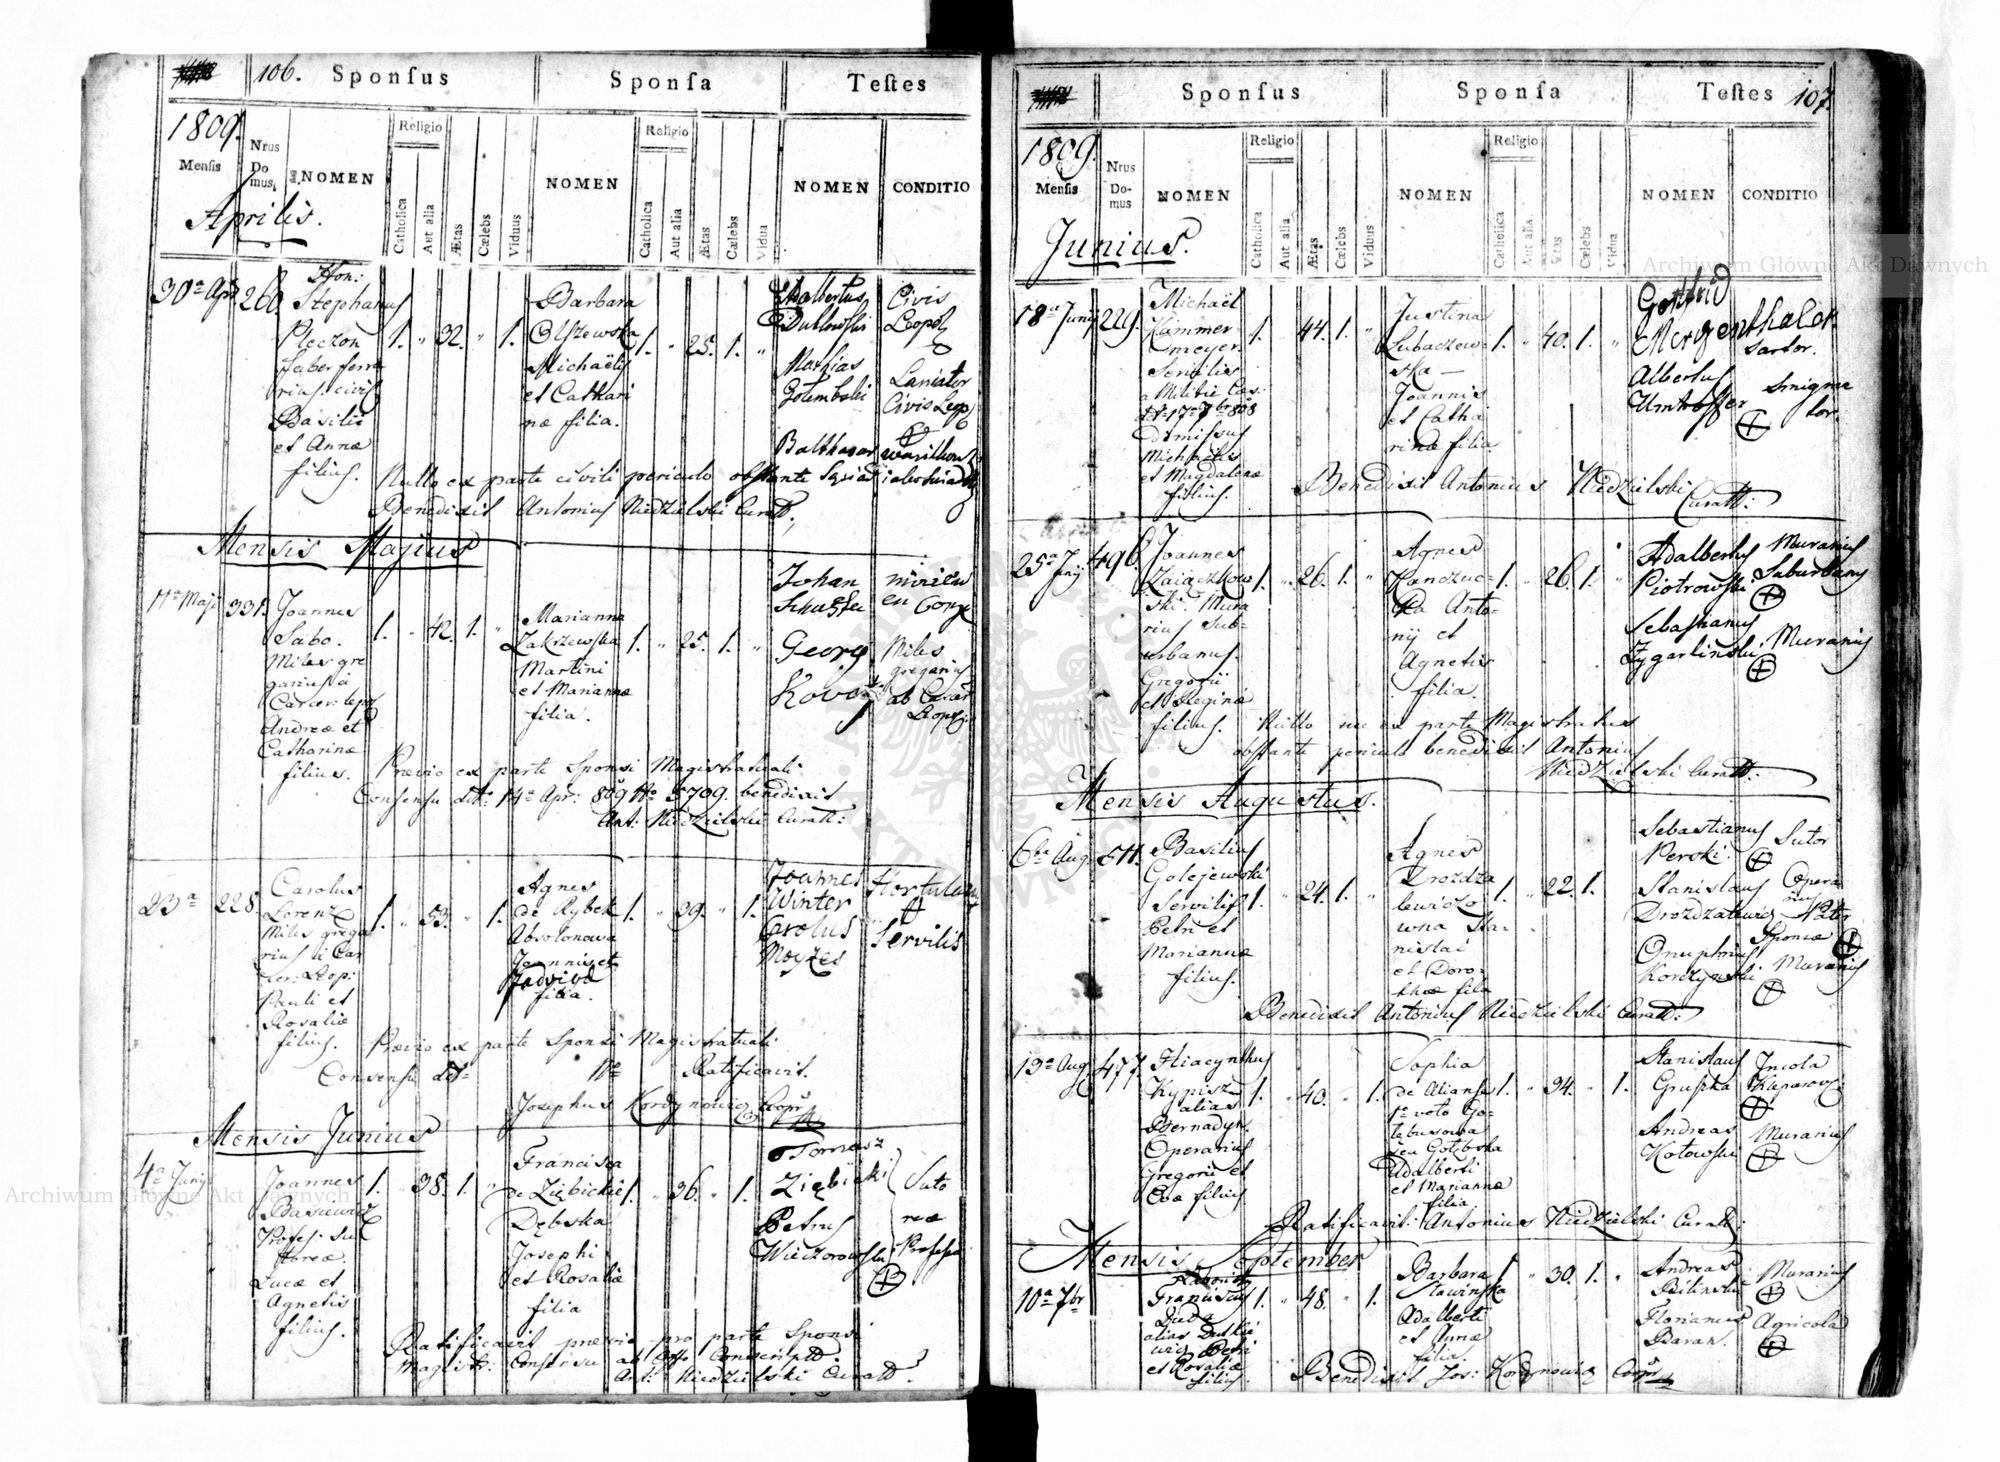 106.
Sponsus
Sponsa
Testes
1809.
Mensis
Nrus
Do
mus
NOMEN
Religio
Catholica
Aut alia
Ætas
Cœlebs
Viduus
NOMEN
Religio
Catholica
Aut alia
Ætas
Cœlebs
Vidua
NOMEN
CONDITIO
Aprilis.
30a Apr 260
Hon:
Stephanus
Pleczon
faber ferra
rius civis
Basilii
et Annæ
filius.
1. " 32. " 1.
Barbara
Olszewska
Michaëlis
et Cathari
næ filia.
1. " 25. 1. "
Adalbertus
Dutkowski
Civis
Leopol
Mathias
Golembski
Laniator
Civis Leop
Balthasar
Nullo ex parte civili periculo obstante
Benedixit Antonius Niedzielski Curatt.
Mensis Majus
11a Maji 331.
Joannes
Sabo.
Miles gre
garius à
Carcer: leop
Andreæ et
Catharinæ
filius.
1. " 42. 1. "
Marianna
Zakrzewska
Martini
et Mariannæ
filia.
1. " 25. 1. "
Johan
Schuster
Georg
Kovats
Miles
gregarius
ab Carcer
Leopol:
Prævio ex parte Sponsi Magistratuali
Consensu dto 14a Apr: 809 No 5709. benedixit
Ant: Niedzielski Curatt:
23a 228.
Carolus
Lorenz
Miles grega
rius à Car
cer: Leop:
Pauli et
Rosaliæ
filius.
1. " 53. " 1.
Agnes
de Rybek
Absolonowa
Joannis et
Hedvivis
filia.
1. " 39. " 1.
Joannes
Winter
Carolus
Moyzes
Hortulanus
Servilis
Prævio ex parte Sponsi Magistratuali
Consensu dto No Ratificavit.
Josephus Kordynowicz Coopr
Mensis Junius
4a Junij
Joannes
Basiewicz
Profess: Su
toreæ
Lucæ et
Agnetis
filius.
1. " 38. 1. "
Francisca
de Ziębickie
Dębska
Josephi
et Rosaliæ
filia
1. " 36. " 1.
Tomasz
Ziębicki
Petrus
Wieczorowski
Suto
reæ
Professi
Ratificavit prævio pro parte Sponsi
Magistr: Consensu ab Offo Conscript.
Ant: Niedzielski Curatt.
Sponsus
Sponsa
Testes
107.
1809.
Mensis
Nrus
Do-
mus
NOMEN
Religio
Catholica
Aut alia
Ætas
Cœlebs
Viduus
NOMEN
Religio
Catholica
Aut alia
Ætas
Cœlebs
Vidua
NOMEN
CONDITIO
Junius.
18a Junij 229.
Michaël
Kammer
meyer.
Servilis
a Militie Cæs:
dto 17a 7br 808
dimissus
Michaëlis
et Magdalenæ
filius.
1. " 44. 1. "
Justina
Lubaczew
ska
Joannis
et Catha
rinæ filia.
1. " 40. 1. "
Gottfrid
Mergenthaler.
Sartor.
Albertus
Umhoffer
Smigma
tor.
Benedixit Antonius Niedzielski
Curatt:
25a Junij 496.
Joannes
Zaiączkow
ski. Mura
rius Sub-
urbanus.
Gregorii
et Reginæ
filius.
1. " 26. 1. "
Agnes
Kanczuc
ka Anto-
nij et
Agnetis
filia.
1. " 26. 1. "
Adalbertus
Piotrowski
Murarius
Suburbanus
Sebastianus
Zygarlinski
Murarius
Nullo ex parte Magistratus
obstante periculo benedixit Antonius
Niedzielski Curatt:
Mensis Augustus.
6ta Aug. 511.
Basilius
Golejewski
Servilis
Petri et
Mariannæ
filius.
1. " 24. 1. "
Agnes
Drozdza
lewiczo
wna Sta-
nislai
et Doro-
theæ filia
1. " 22. 1.
Sebastianus
Perski.
Sutor
Stanislaus
Drozdzalewicz
Opera
rius Pater
Sponsæ
Onuphrius
Kordzynski
Murarius
Benedixit Antonius Niedzielski Curatt:
13a Aug 477
Hiacynthus
Kypisz
alias
Bernadyn.
Operarius
Gregorii et
Evæ filius
1. " 40. " 1.
Sophia
de
1o voto Go-
łębiowa
seu Gołębska
Adalberti
et Mariannæ
filia
1. " 34. " 1.
Stanislaus
Grupka
Incola
Andreas
Kotowski
Murarius
Ratificavit: Antonius Niedzielski Curatt:
Mensis September
10a 7br
Franciscus
Duda
alias Dutkie
wicz Petri
et Rosaliæ
filius.
1. " 48. " 1.
Barbara
Stawinska
Adalberti
et Annæ
filia
1. " 30. 1. "
Andreas
Bilinski
Murarius
Florianus
Baran.
Agricola
Benedixit Jos: Kordynowicz Coopr
Archiwum Główne Akt Dawnych
Archiwum Główne Akt Dawnych